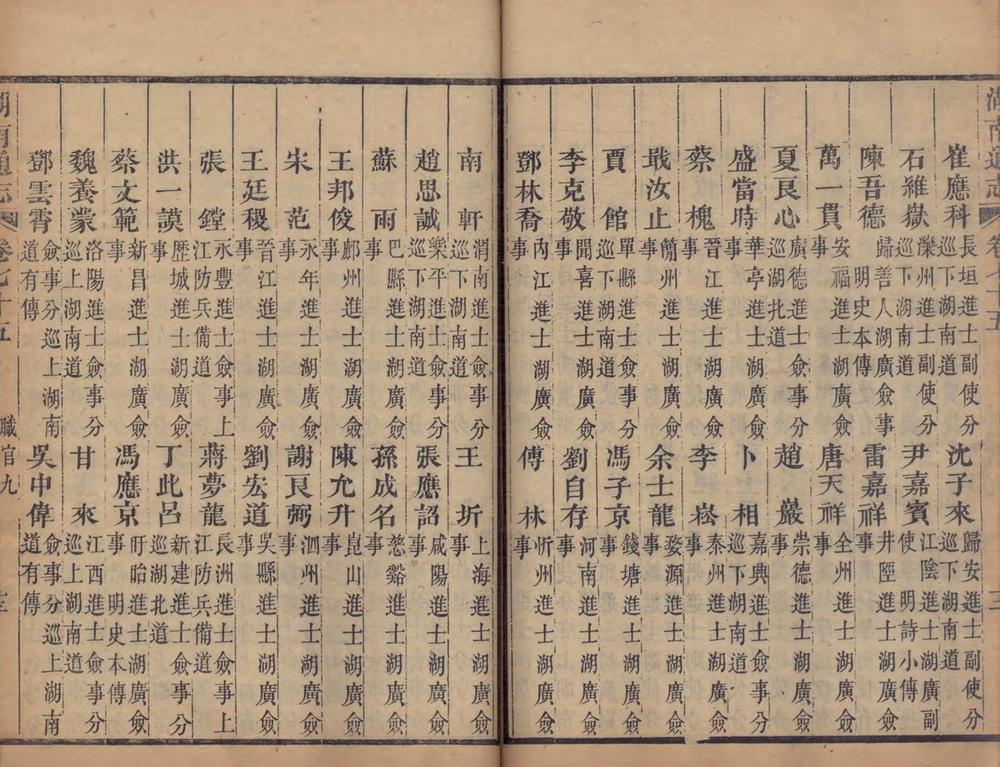 湖南通志 卷七十五 三
崔應科 長垣進士副使分巡下湖南道 沈子來 歸安進士副使分巡下湖南道
石維嶽 灤州進士副使分巡下湖南道 尹嘉賓 江陰進士湖廣副使明詩小傳
陳吾德 歸善人湖廣僉事明史本傳 雷嘉祥 井陘進士湖廣僉事
萬一貫 安福進士湖廣僉事 唐天祥 全州進士湖廣僉事
夏良心 廣德進士僉事分巡湖北道 趙巖 崇德進士湖廣僉事
盛當時 華亭進士湖廣僉事 卜相 嘉興進士僉事分巡下湖南道
蔡槐 晉江進士湖廣僉事 李崧 泰州進士湖廣僉事
戢汝止 蕳州進士湖廣僉事 余士龍 婺源進士湖廣僉事
賈館 單縣進士僉事分巡下湖南道 馮子京 錢塘進士湖廣僉事
李克敬 聞喜進士湖廣僉事 劉自存 河南進士湖廣僉事
鄧林喬 內江進士湖廣僉事 傅林 忻州進士湖廣僉事
南軒 渭南進士僉事分巡下湖南道 王圻 上海進士湖廣僉事
趙思誠 樂平進士僉事分巡下湖南道 張應詔 咸陽進士湖廣僉事
蘇雨 巴縣進士湖廣僉事 孫成名 慈谿進士湖廣僉事
王邦俊 鄜州進士湖廣僉事 陳允升 崑山進士湖廣僉事
宋范 永年進士湖廣僉事 謝良弼 泗州進士湖廣僉事
王廷稷 晉江進士湖廣僉事 劉宏道 吳縣進士湖廣僉事
張鏜 永豐進士僉事上江防兵備道 蔣夢龍 長洲進士僉事上江防兵備道
洪一謨 歷城進士湖廣僉事 丁此呂 新建進士僉事分巡湖北道
蔡文範 新昌進士湖廣僉事 馮應京 盱眙進士湖廣僉事明史本傳
魏養蒙 洛陽進士僉事分巡上湖南道 甘來 江西進士僉事分巡上湖南道
鄧雲霄 僉事分巡上湖南道有傳 吳中偉 僉事分巡上湖南道有傳
湖南通志 卷七十五 職官九